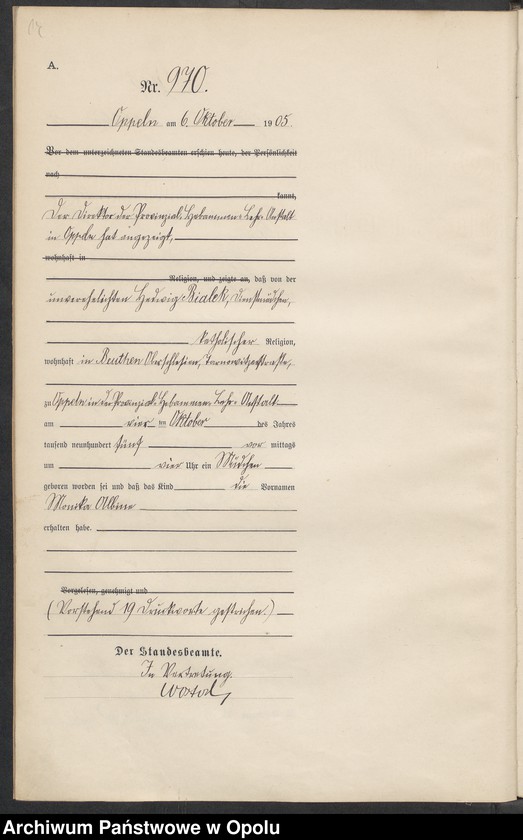 A.
Nr. 970.
Oppeln am 6. Oktober 1905
Vor dem unterzeichneten Standesbeamten erschien heute, der Persönlichkeit
nach
kannt,
Der Direktor der Provinzial-Hebammen-Lehr-Anstalt
in Oppeln hat angezeigt,
wohnhaft in
Religion, und zeigte an, daß von der
unverehelichten Hedwig Bialek, Dienstmädchen,
katholischer Religion,
wohnhaft in Beuthen Oberschlesien, Tarnowitzerstraße,
zu Oppeln in der Provinzial-Hebammen-Lehr-Anstalt
am vier ten Oktober des Jahres
tausend neunhundert fünf vor mittags
um vier Uhr ein Mädchen
geboren worden sei und daß das Kind die Vornamen
Monika Albine
erhalten habe.
Vorgelesen, genehmigt und
(Vorstehend 19 Druckworte gestrichen.)
Der Standesbeamte.
In Vertretung.
Archiwum Państwowe w Opolu